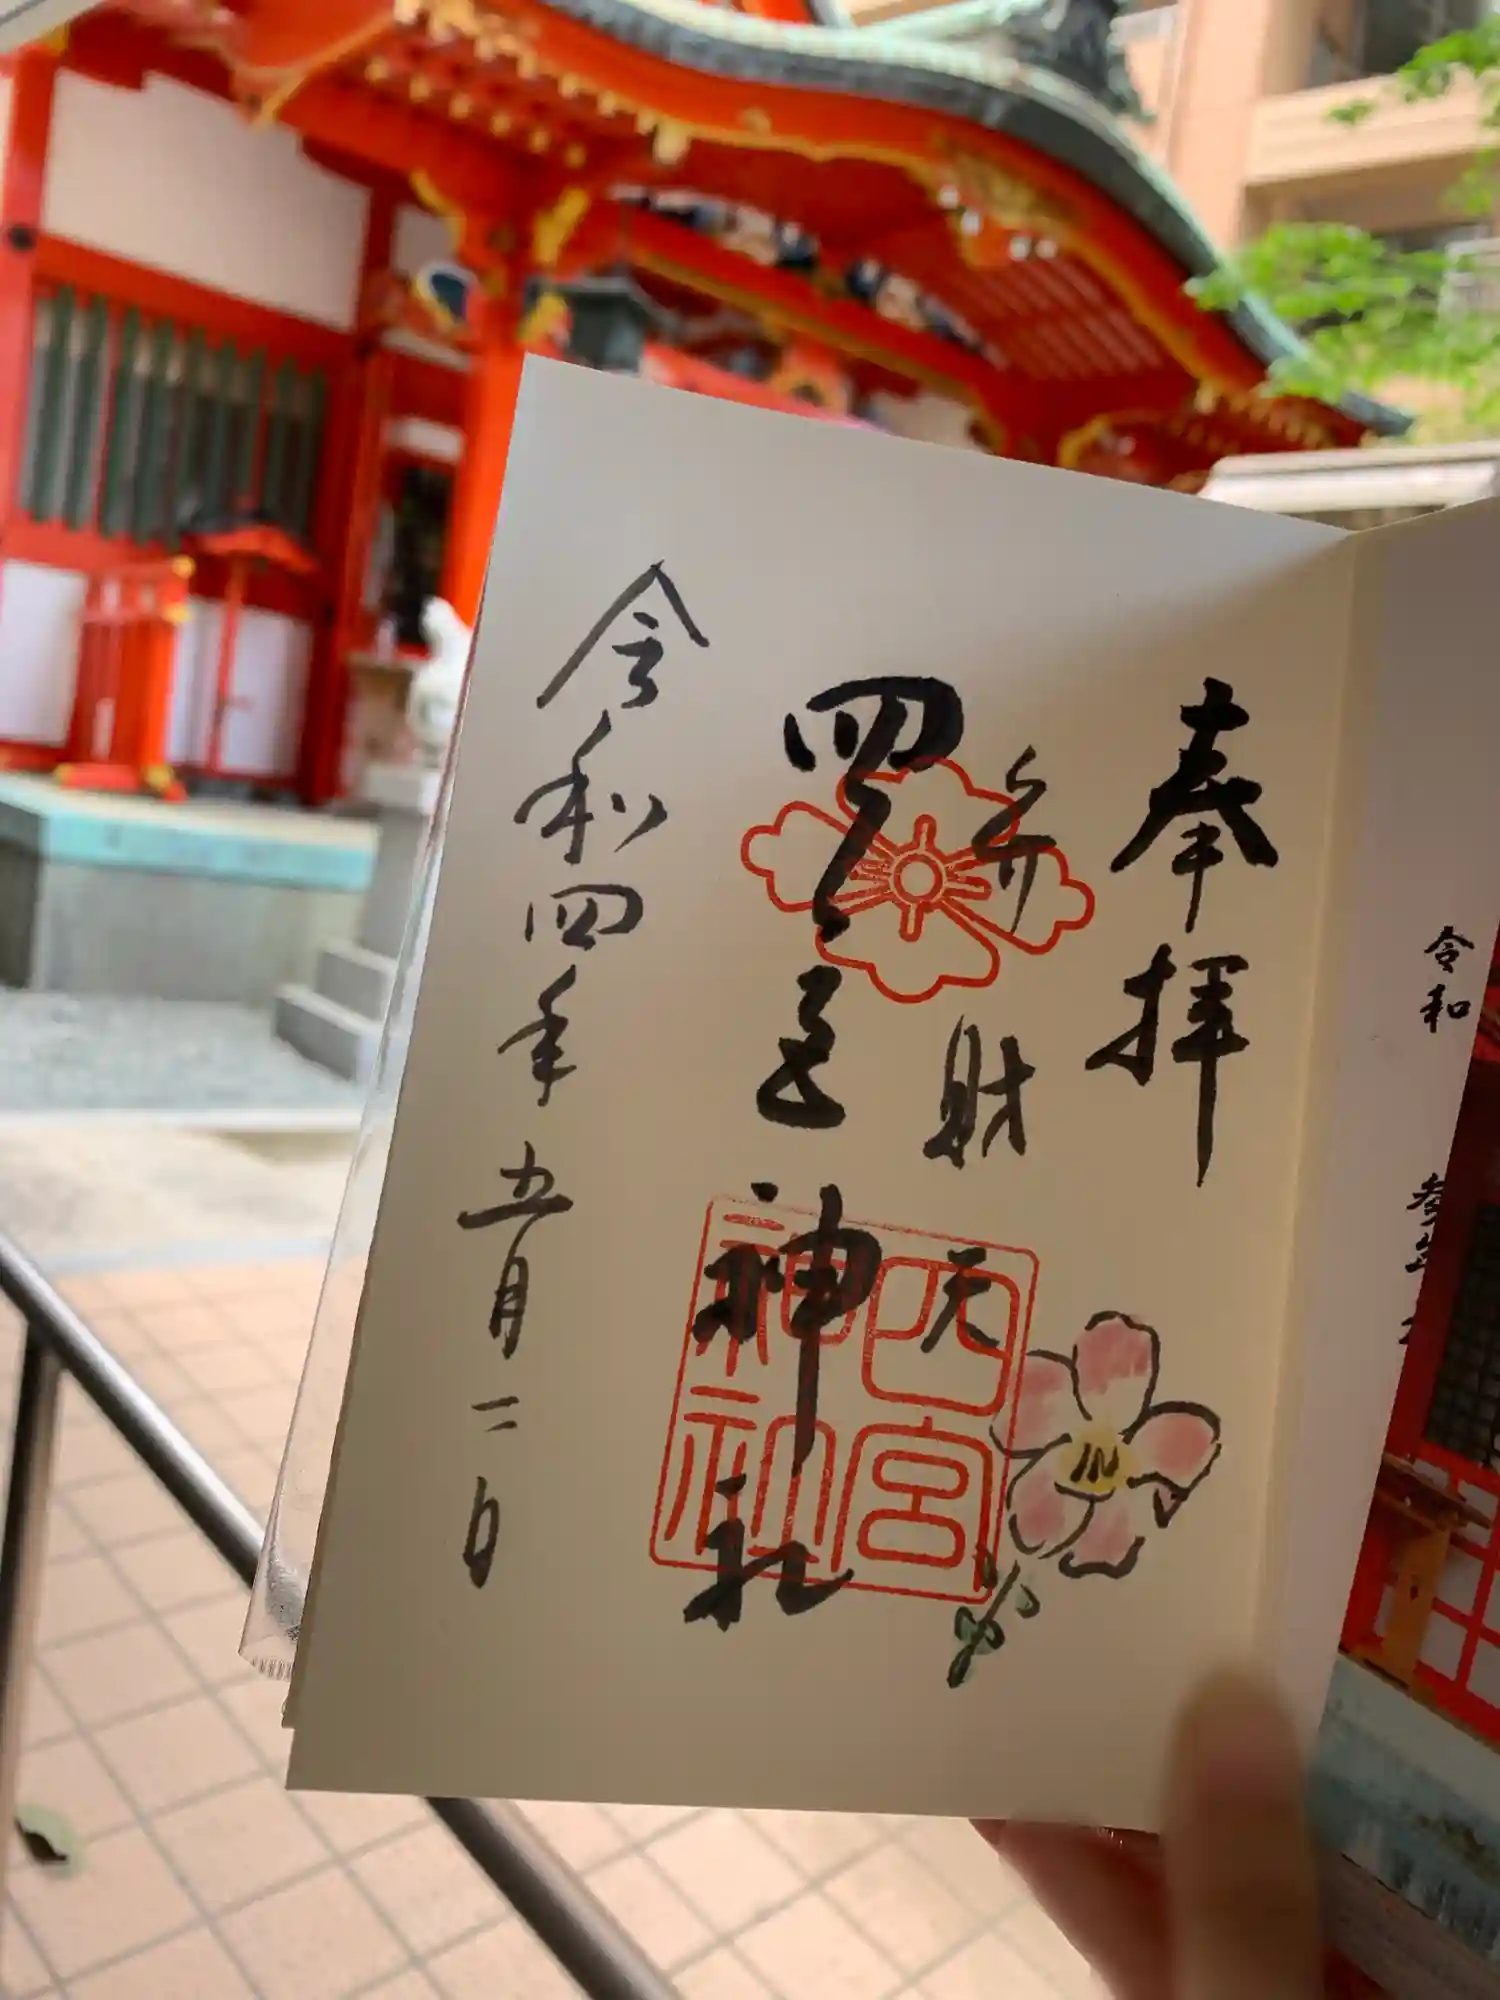 奉拝
弁財天
四之宮神社
四宮
神社
令和四年五月二日
令和